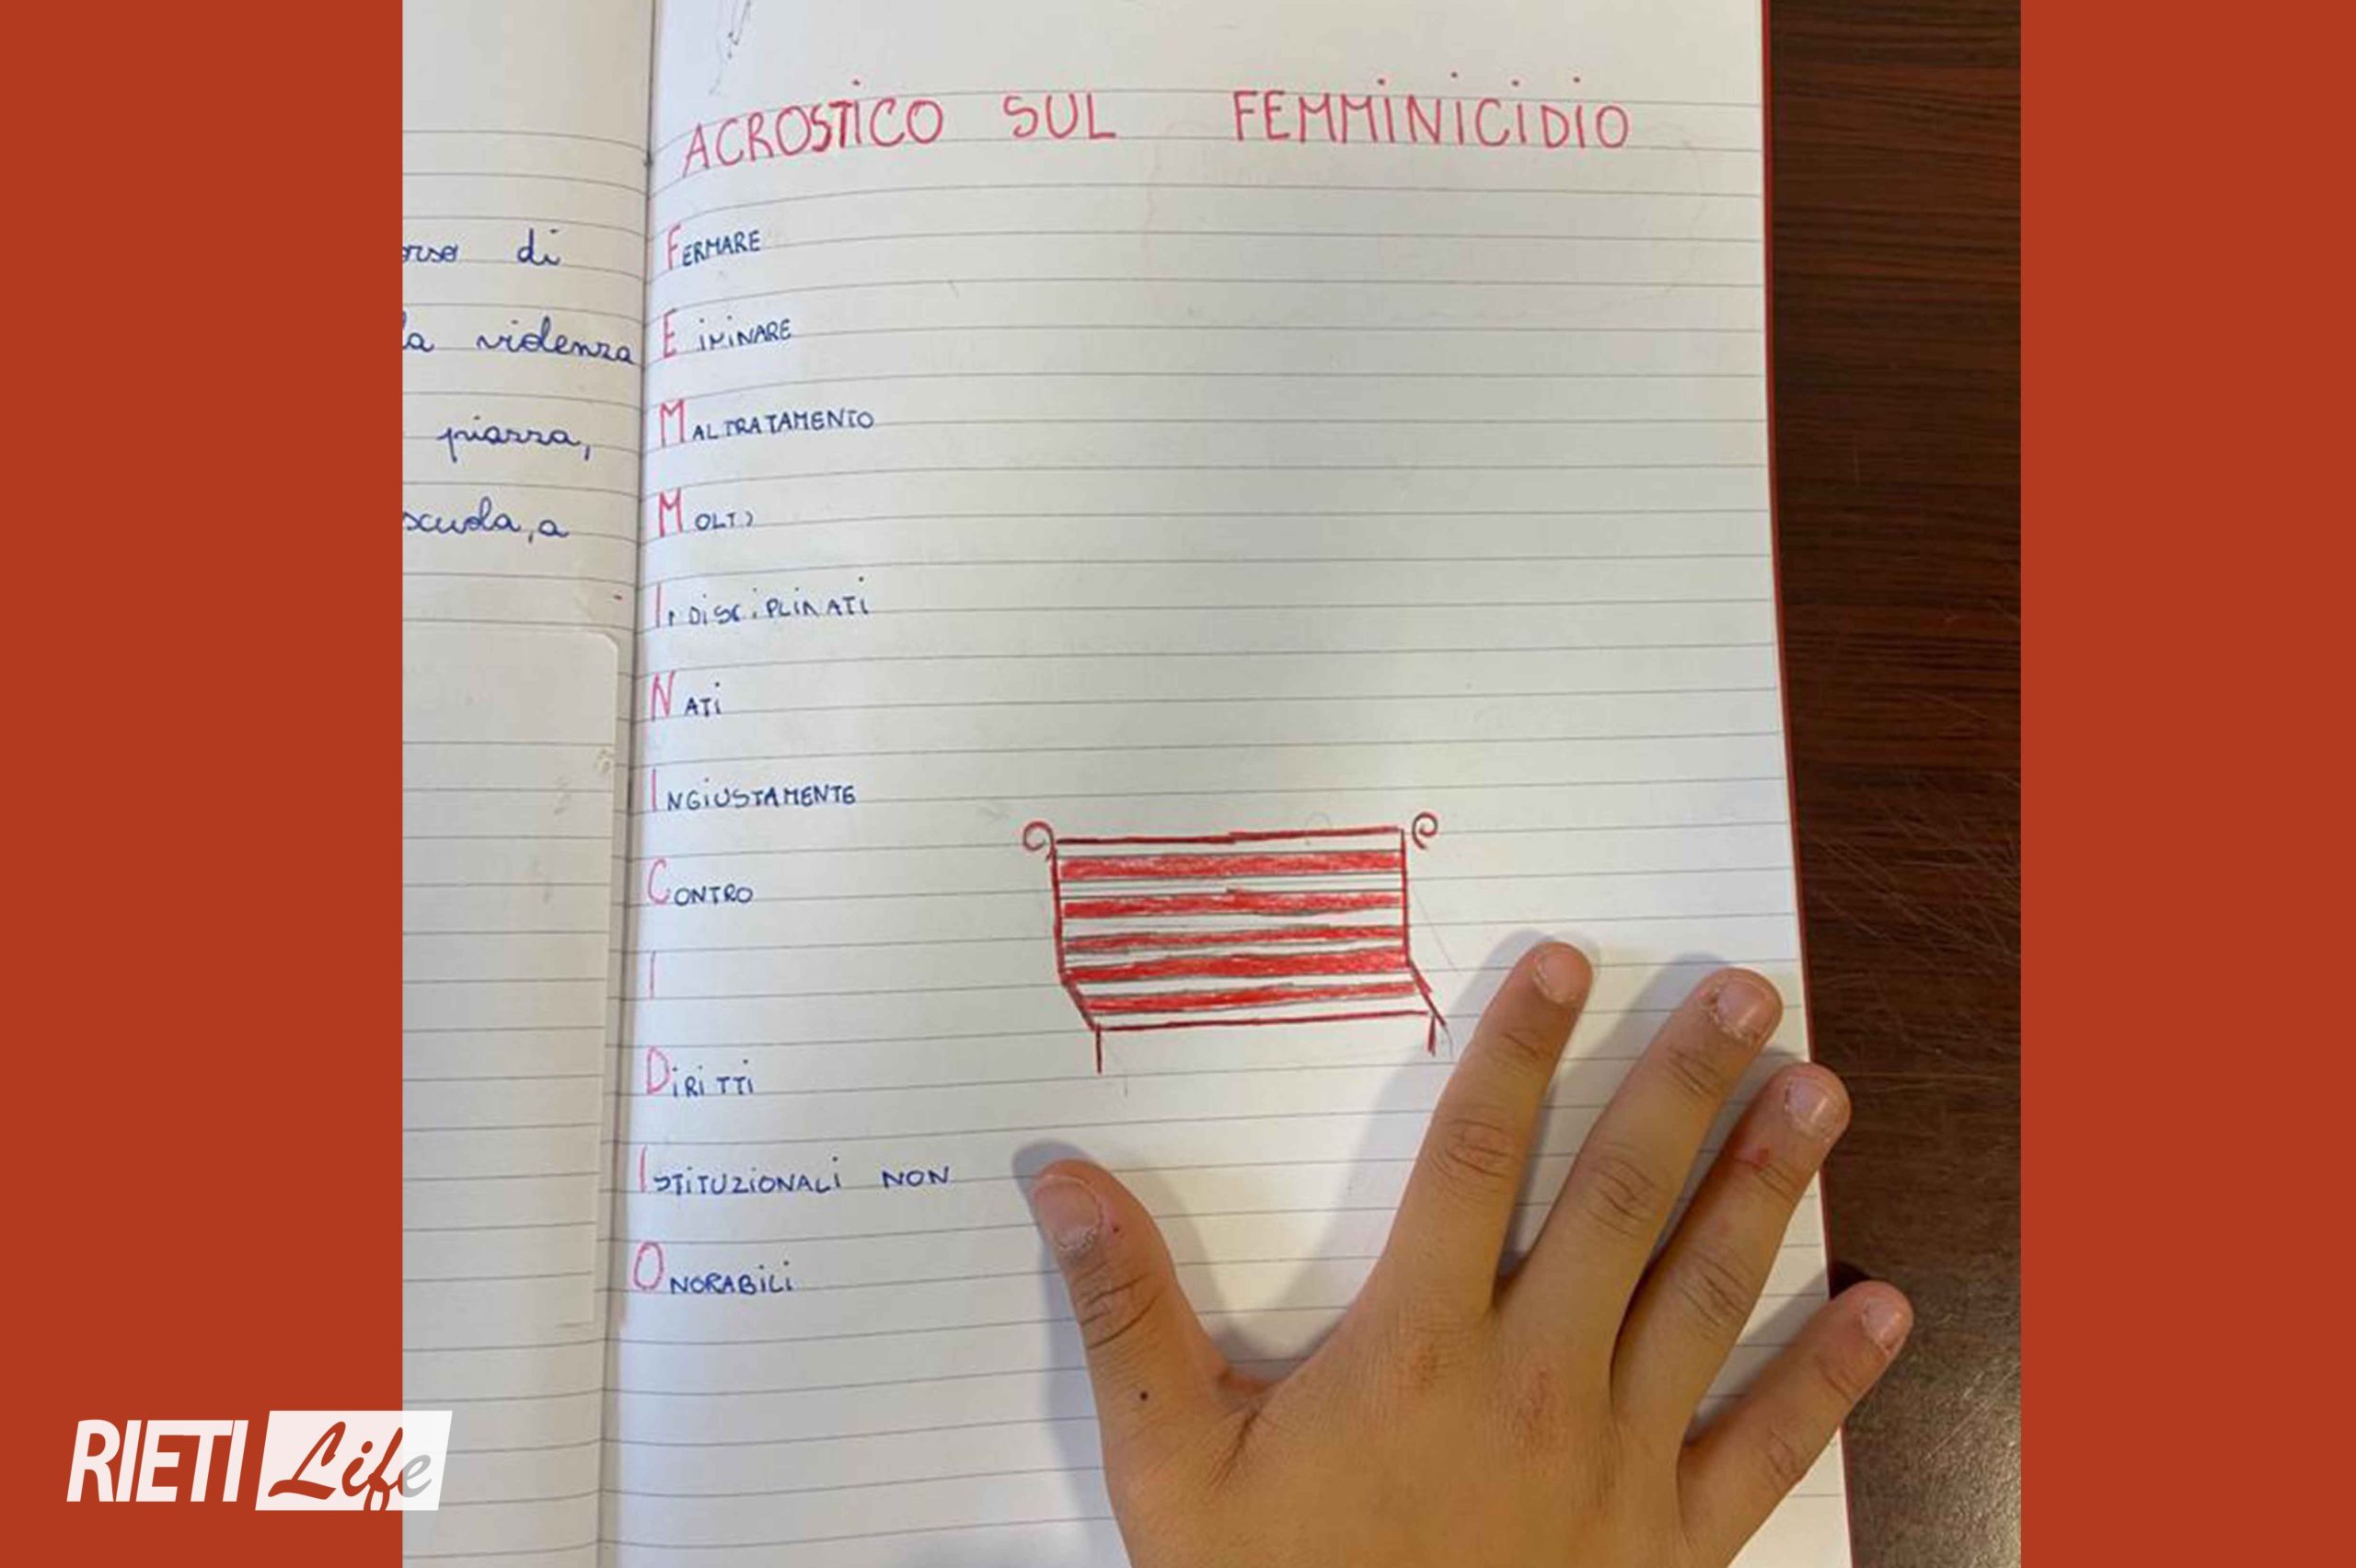 orso di
la violenza
piazza,
scuola, a
ACROSTICO SUL FEMMINICIDIO
FERMARE
E iMiNARE
MALTRATAMENTO
MOLTI
INDISCIPLINATI
NATi
INGIUSTAMENTE
CONTRO
I
DiRiTTi
ISTITUZIONALI NON
ONORABILI
RIETI Life